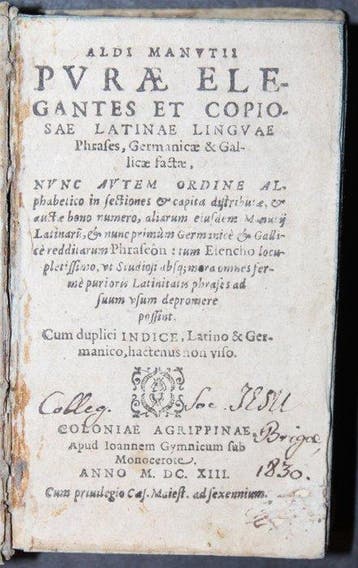 ALDI MANVTII
PVRÆ ELE-
GANTES ET COPIO-
SAE LATINAE LINGVAE
Phrases, Germanicæ & Gal-
licæ factæ,
NVNC AVTEM ORDINE AL-
phabetico in sectiones & capita distributæ, &
auctæ bono numero, aliarum eiusdem Manutij
Latinarū, & nunc primùm Germanicè & Galli-
cè redditarum Phraseōn: tum Elencho locu-
pletissimo, vt Studiosi absq; mora omnes fer-
mè purioris Latinitatis phrases ad
suum vsum depromere
possint.
Cum duplici INDICE, Latino & Ger-
manico, hactenus non viso.
Colleg. Soc. JESU
COLONIAE AGRIPPINAE,
Brigæ
Apud Ioannem Gymnicum sub
Monocerote,
1830.
ANNO M. DC. XIII.
Cum priuilegio Cæs. Maiest. ad sexennium.